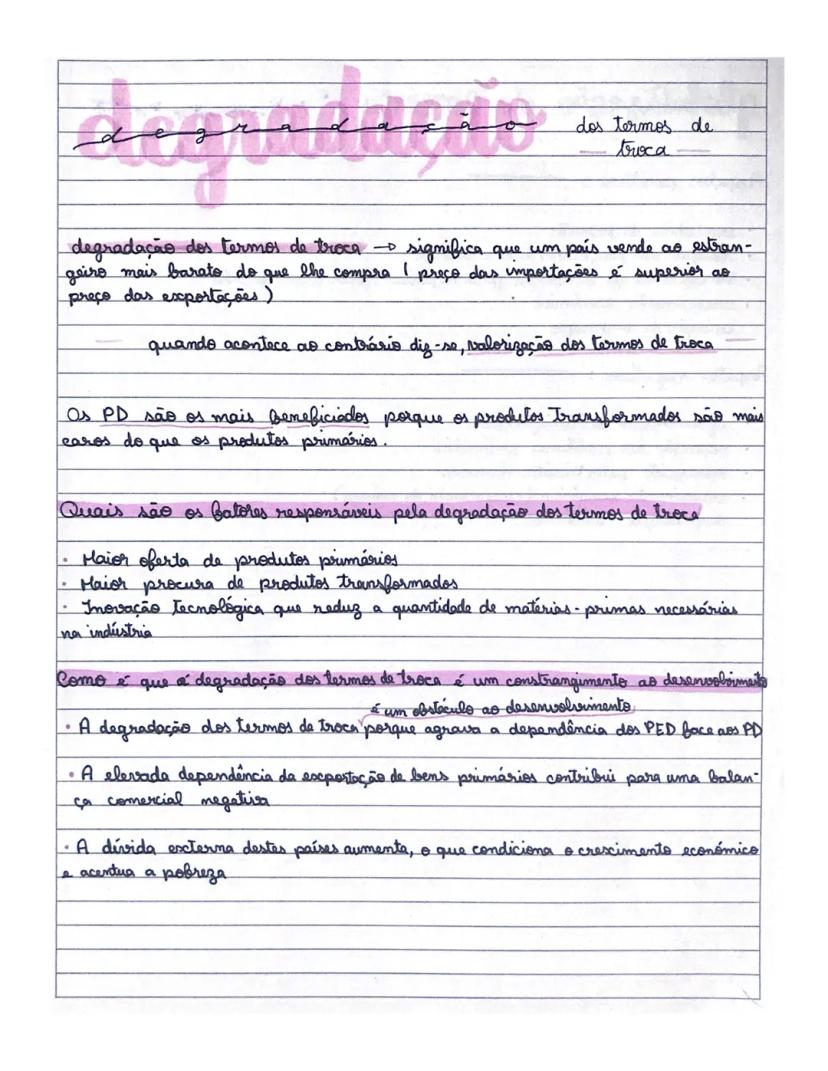 degradação
dos termos de
troca
degradação dos termos de troca → significa que um país vende ao estran-
geiro mais barato do que lhe compra ( preço das importações é superior ao
preço das exportações )
quando acontece ao contrário diz-se, valorização dos termos de troca
Os PD são os mais beneficiados porque os produtos Transformados são mais
caros do que os produtos primários.
Quais são os fatores responsáveis pela degradação dos termos de troca
· Maior oferta de produtos primários
· Maior procura de produtos transformados
· Inovação Tecnológica que reduz a quantidade de matérias-primas necessárias
na indústria
Como é que a degradação dos termos de troca é um constrangimento ao desenvolvimento
é um obstáculo ao desenvolvimento
· A degradação dos termos de troca porque agrava a dependência dos PED face aos PD
· A elevada dependência da exportação de bens primários contribui para uma balan-
ça comercial negativa
· A dívida externa destes países aumenta, o que condiciona o crescimento económico
e acentua a pobreza